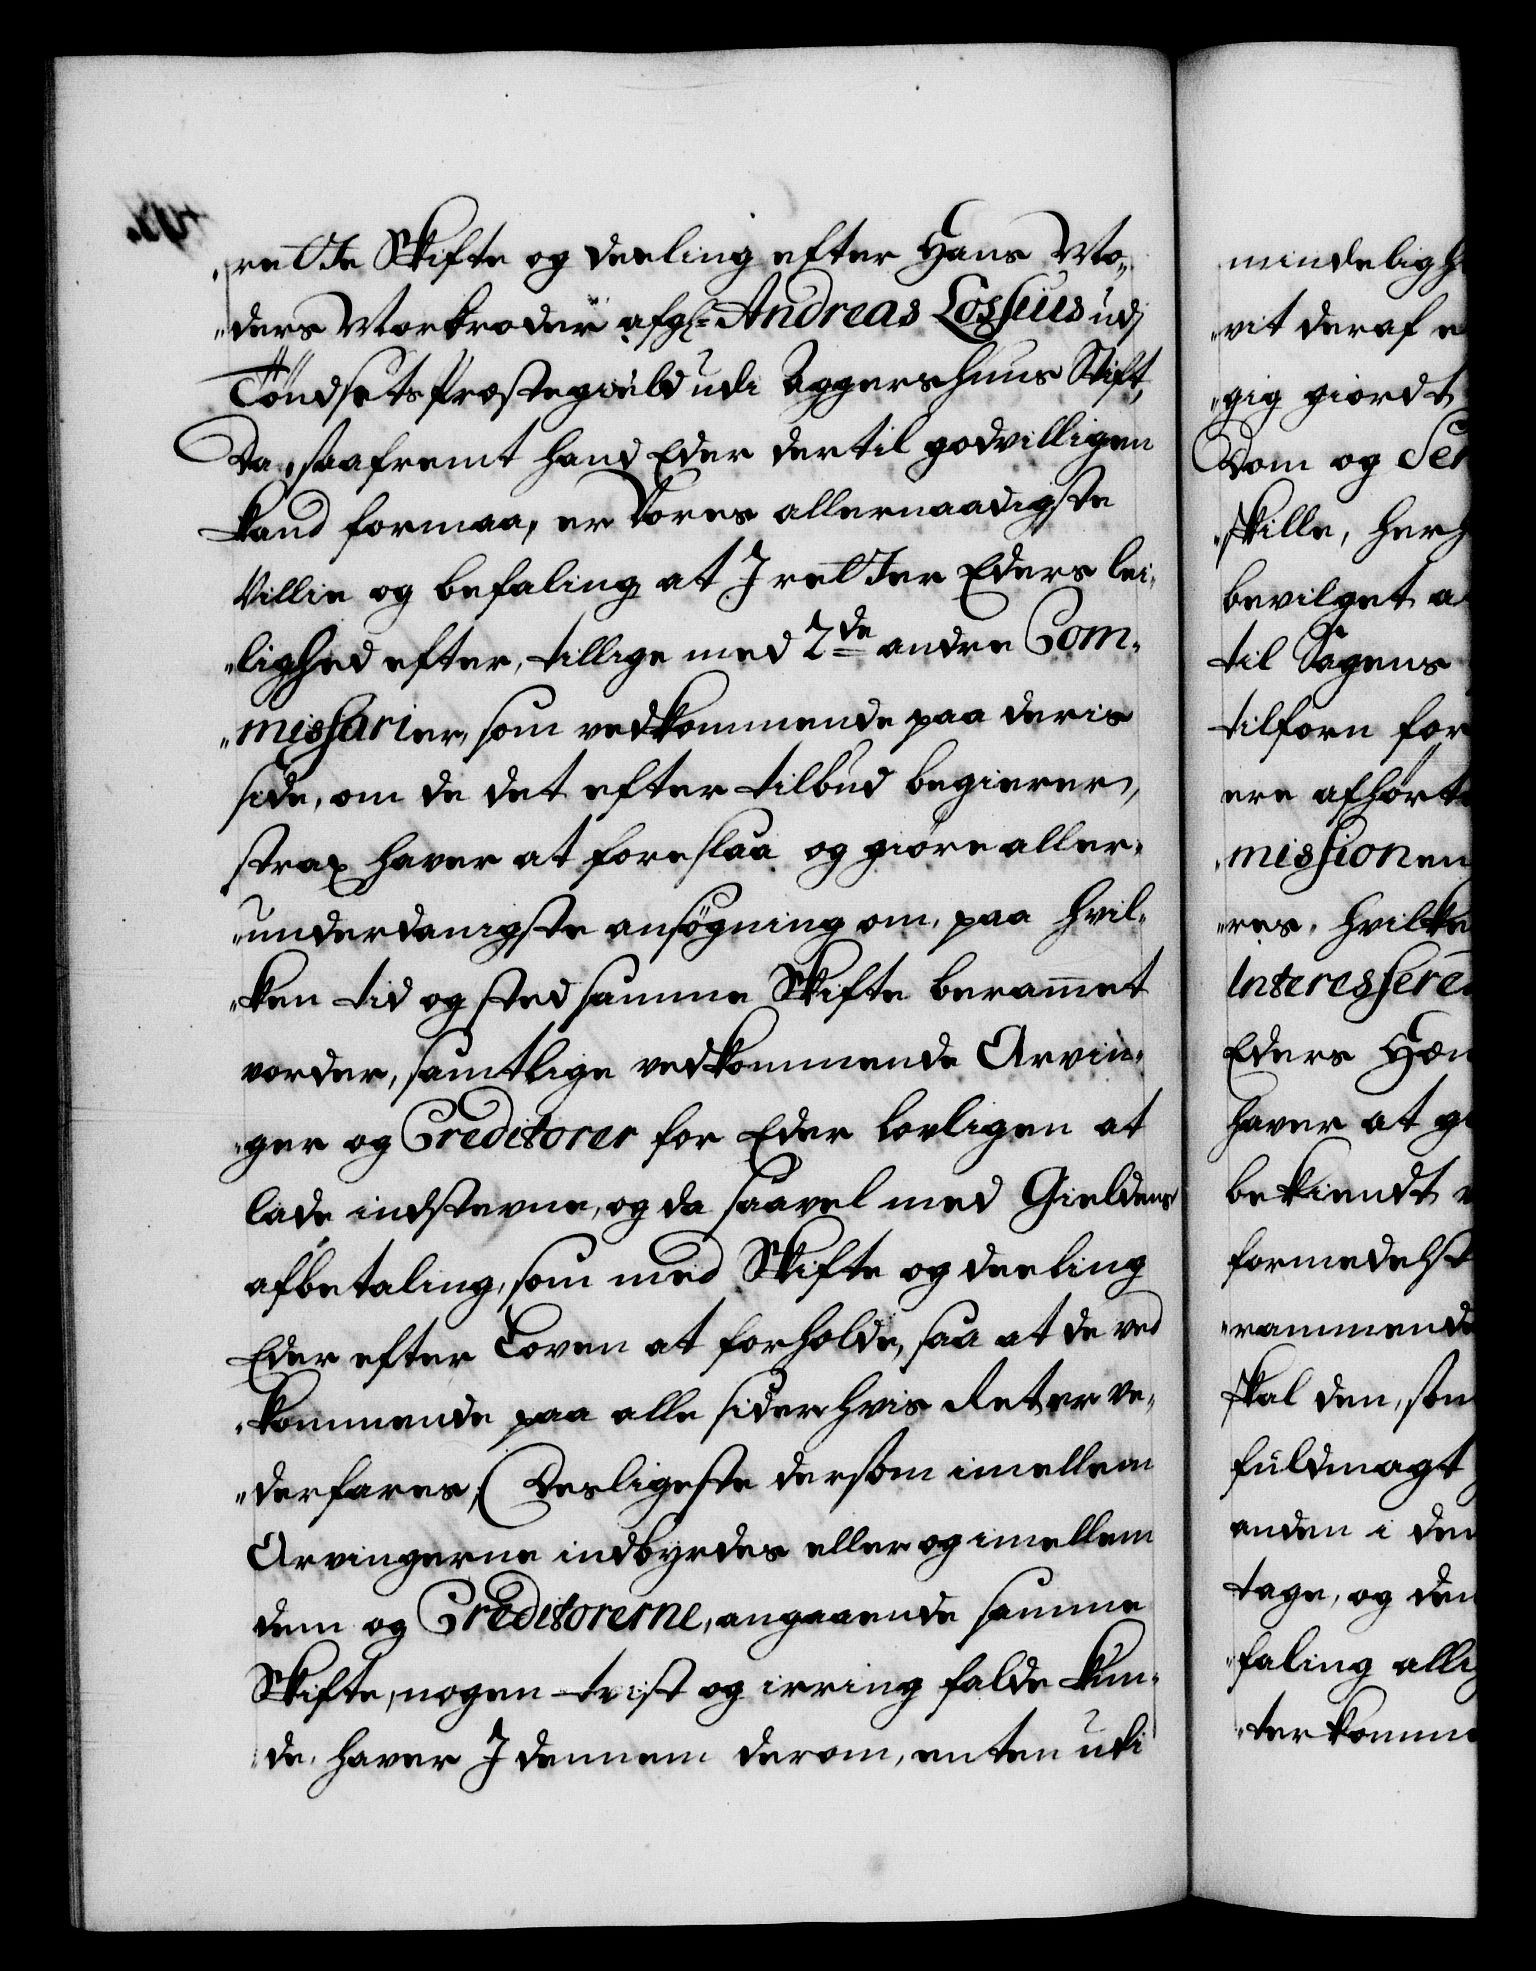 „rette Skifte og deeling efter Hans Mo„
„ders Morbroder afg: Andreas Lossius udi
Töndsets Præstegield udi Aggershuus Stift,
Da, saafremt hand Eder dertil godvilligen
kand formaa, er Vores allernaadigste
Villie og befaling at I retter Eders lei„
„lighed efter, tillige med 2de andre Com„
„missarier, som vedkommende paa deris
side, om de det efter tilbud begierer,
strax haver at foreslaa og giöre aller„
„underdanigste ansögning om, paa hvil„
„ken tid og sted samme Skifte beram̅et
vorder, samtlige vedkommende Arvin„
„ger og Creditorer for Eder lovligen at
lade indstevne, og da saavel med Gieldens
afbetaling, som med Skifte og deeling
Eder efter Loven at forholde, saa at de ved
„kommende paa alle sider hvis Ret er ve„
„derfares; Desligeste dersom imellem
Arvingerne indbyrdes eller og imellem
dem og Creditorerne, angaaende samme
Skifte, nogen tvist og irring falde kun„
„de, haver I dennem derom, enten udi
mindeligh
vit deraf e
„gig giordt
Dom og Sen
„skille, her
bevilget a
til Sagens
tilforn for
ere afhört
„missionen
„res, hvilke
Interessere
Eders Hæn
haver at g
bekiendt
formedelst
„rammende
skal den, som
fuldmagt
anden i den
tage, og den
„faling alli
„terkomme